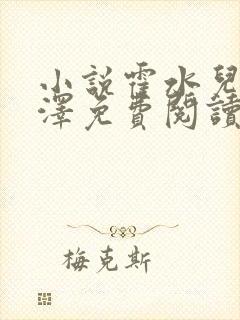 小說霍水兒
澤免費閱讀
梅克斯